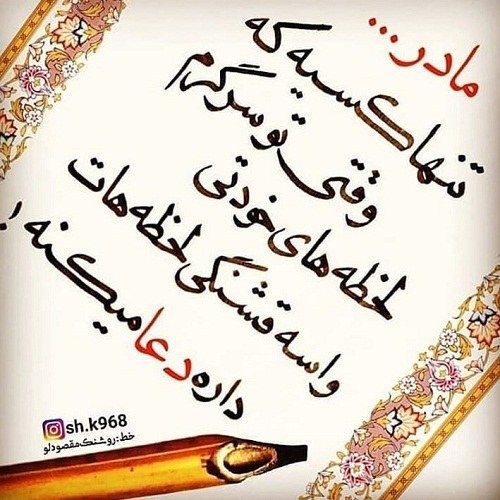 مادر...
تنها کسیه که
وقتی تو سرگرم
لحظه های خودتی
واسه قشنگی لحظه هات
داره دعا میکنه
sh.k968
خط:روشنک مقصودلو